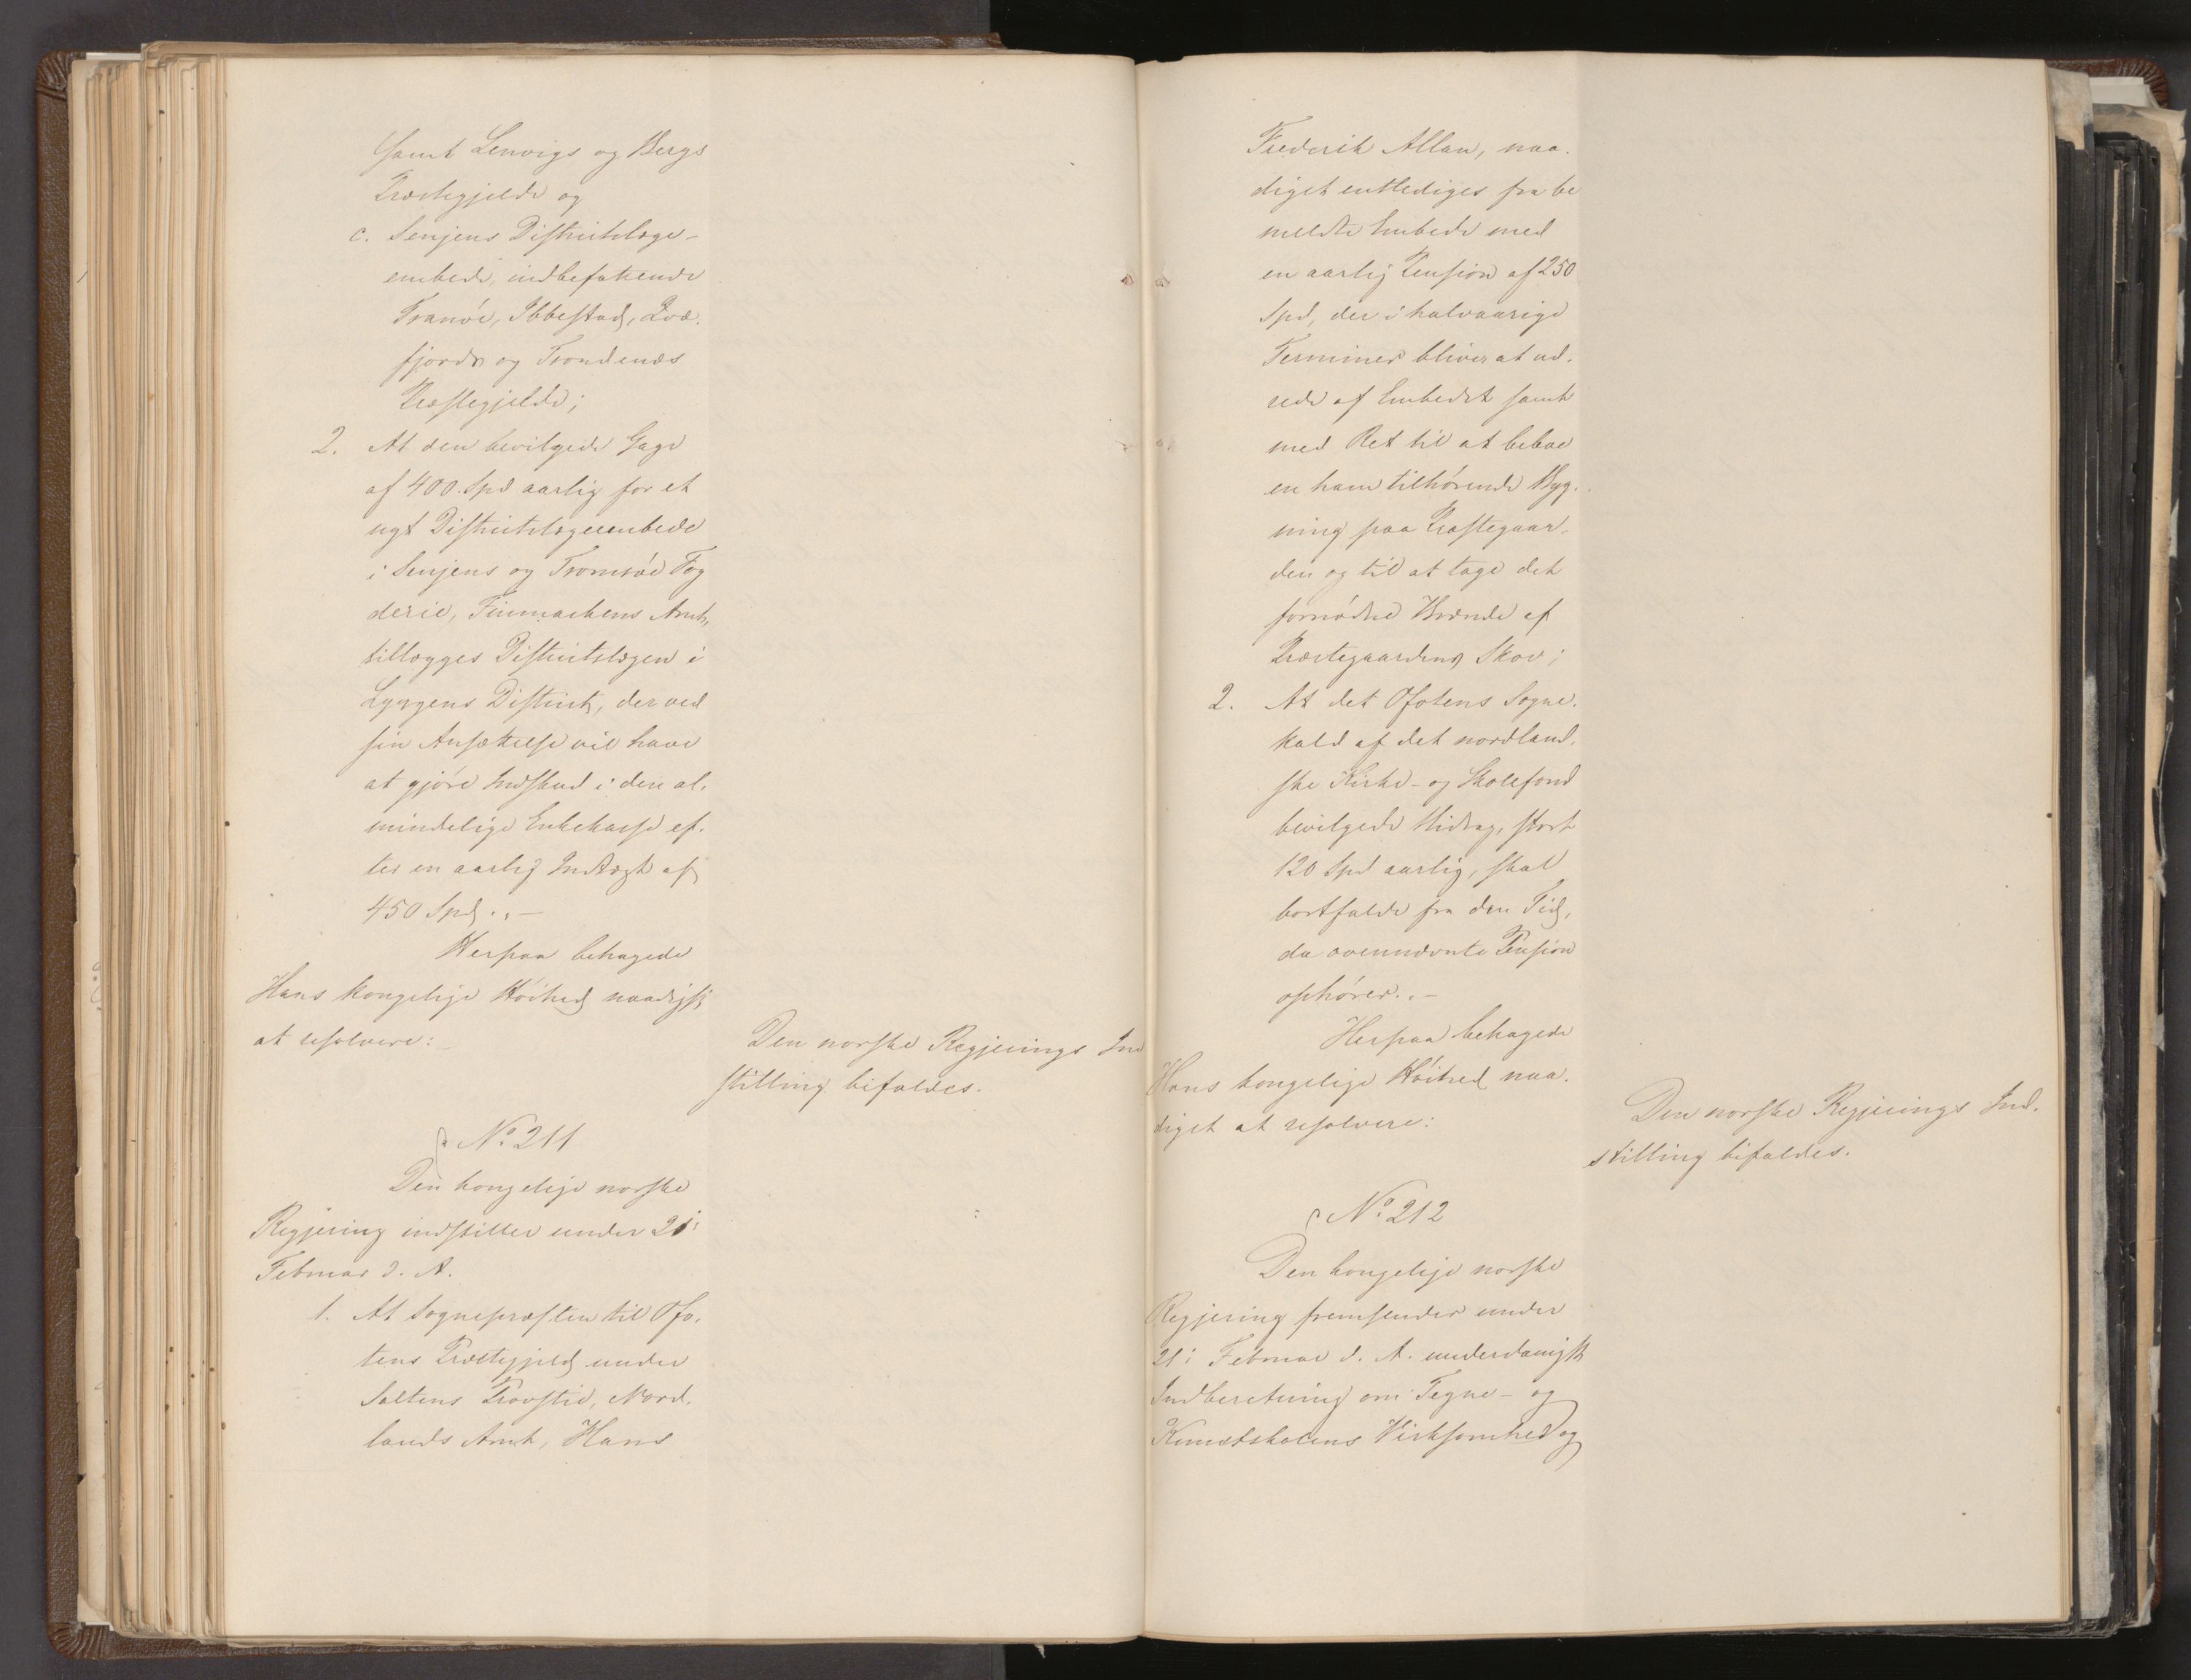 samt Lenvigs og Bergs
Præstegjelde og
c. Senjens Distriktslæge-
embede, indbefattende
Tranöe, Ibbestad, Qvæ-
fjords og Trondenæs
Præstegjelde;
2. At den bevilgede Gage
af 400. Spd aarlig for et
nyt Distriktslægeembede
i Senjens og Tromsöe Fog
derie, Finmarkens Amt,
tillægges Distriktslægen i
Lyngens Distrikt, der ved
sin Ansættelse vil have
at gjöre Indskud i den al-
mindelige Enkekasse ef-
ter en aarlig Indtægt af
450 Spd. . –
Herpaa behagede
Hans kongelige Höihed naadigst
at resolvere: –
Den norske Regjerings Ind
stilling bifaldes.
No 211
Den kongelige norske
Regjering indstiller under 21
Februar d. A.
1. At Sognepræsten til Ofo-
tens Præstegjeld under
Saltens Provstie, Nord-
lands Amt, Hans
Frederik Allan, naa-
digst entlediges fra be
meldte Embede med
en aarlig Pension af 250
Spd, der i halvaarige
Terminer bliver at ud-
rede af Embedet samt
med Ret til at beboe
en ham tilhörende Byg-
ning paa Præstegaar-
den og til at tage det
fornödne Brænde af
Præstegaardens Skov;
2. At det Ofotens Sogne-
kald af det nordland-
ske Kirke- og Skolefond
bevilgede Bidrag, stort
120 Spd aarlig, skal
bortfalde fra den Tid,
da ovennævnte Pension
ophörer. . –
Herpaa behagede
Hans kongelige Höihed naa-
digst at resolvere:
Den norske Regjerings Ind-
stilling bifaldes.
No 212
Den kongelige norske
Regjering fremsender under
21 Februar d. A. underdanigst
Indberetning om Tegne- og
Kunstskolens Virksomhed og